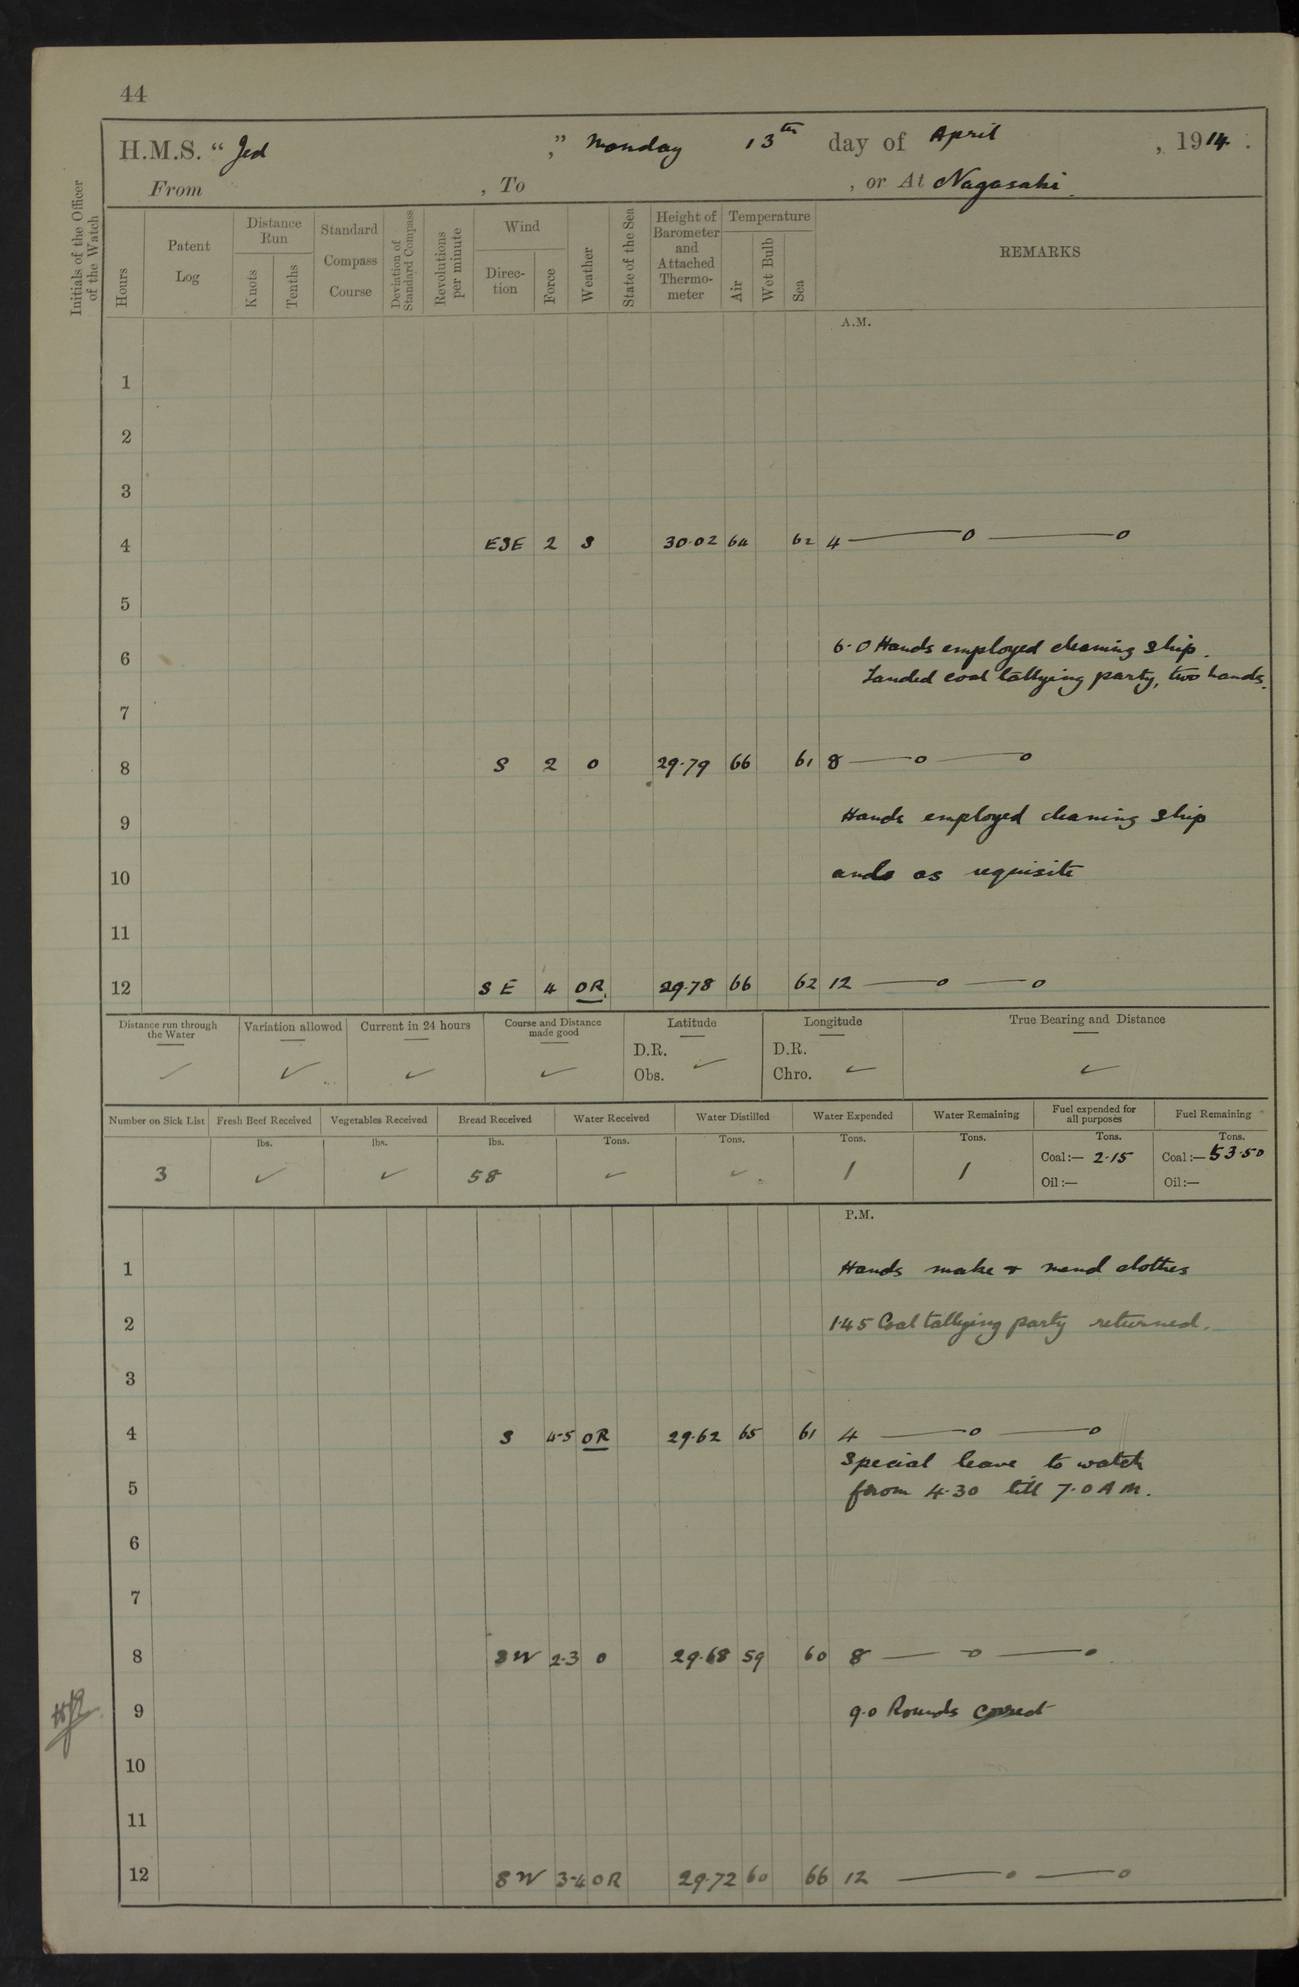 44
H.M.S. “ Jed ,” Monday 13th day of April , 1914 .
From , To , or At Nagasaki
Initials of the Officer of the Watch
Hours
Patent Log
Distance Run
Knots
Tenths
Standard Compass Course
Deviation of Standard Compass
Revolutions per minute
Wind
Direc-tion
Force
Weather
State of the Sea
Height of Barometer and Attached Thermo-meter
Temperature
Air
Wet Bulb
Sea
REMARKS
A.M.
1
2
3
4 ESE 2 S 30.02 64 62 4 — o — o
5
6 6.0 Hands employed cleaning ship.
Landed coal tallying party, two hands.
7
8 S 2 O 29.79 66 61 8 — o — o
9 Hands employed cleaning ship
10 and as requisite
11
12 SE 4 OR 29.78 66 62 12 — o — o
Distance run through the Water ✓
Variation allowed ✓
Current in 24 hours ✓
Course and Distance made good ✓
Latitude D.R. Obs. ✓
Longitude D.R. Chro. ✓
True Bearing and Distance ✓
Number on Sick List 3
Fresh Beef Received lbs. ✓
Vegetables Received lbs. ✓
Bread Received lbs. 58
Water Received Tons. ✓
Water Distilled Tons. ✓
Water Expended Tons. 1
Water Remaining Tons. 1
Fuel expended for all purposes Tons. Coal:— 2.15 Oil:—
Fuel Remaining Tons. Coal:— 53.50 Oil:—
P.M.
1 Hands make & mend clothes
2 1.45 Coal tallying party returned.
3
4 S 4-5 OR 29.62 65 61 4 — o — o
Special leave to watch
5 from 4.30 till 7.0 AM.
6
7
8 SW 2.3 O 29.68 59 60 8 — o — o
9 9.0 Rounds correct
10
11
12 SW 3-4 OR 29.72 60 66 12 — o — o